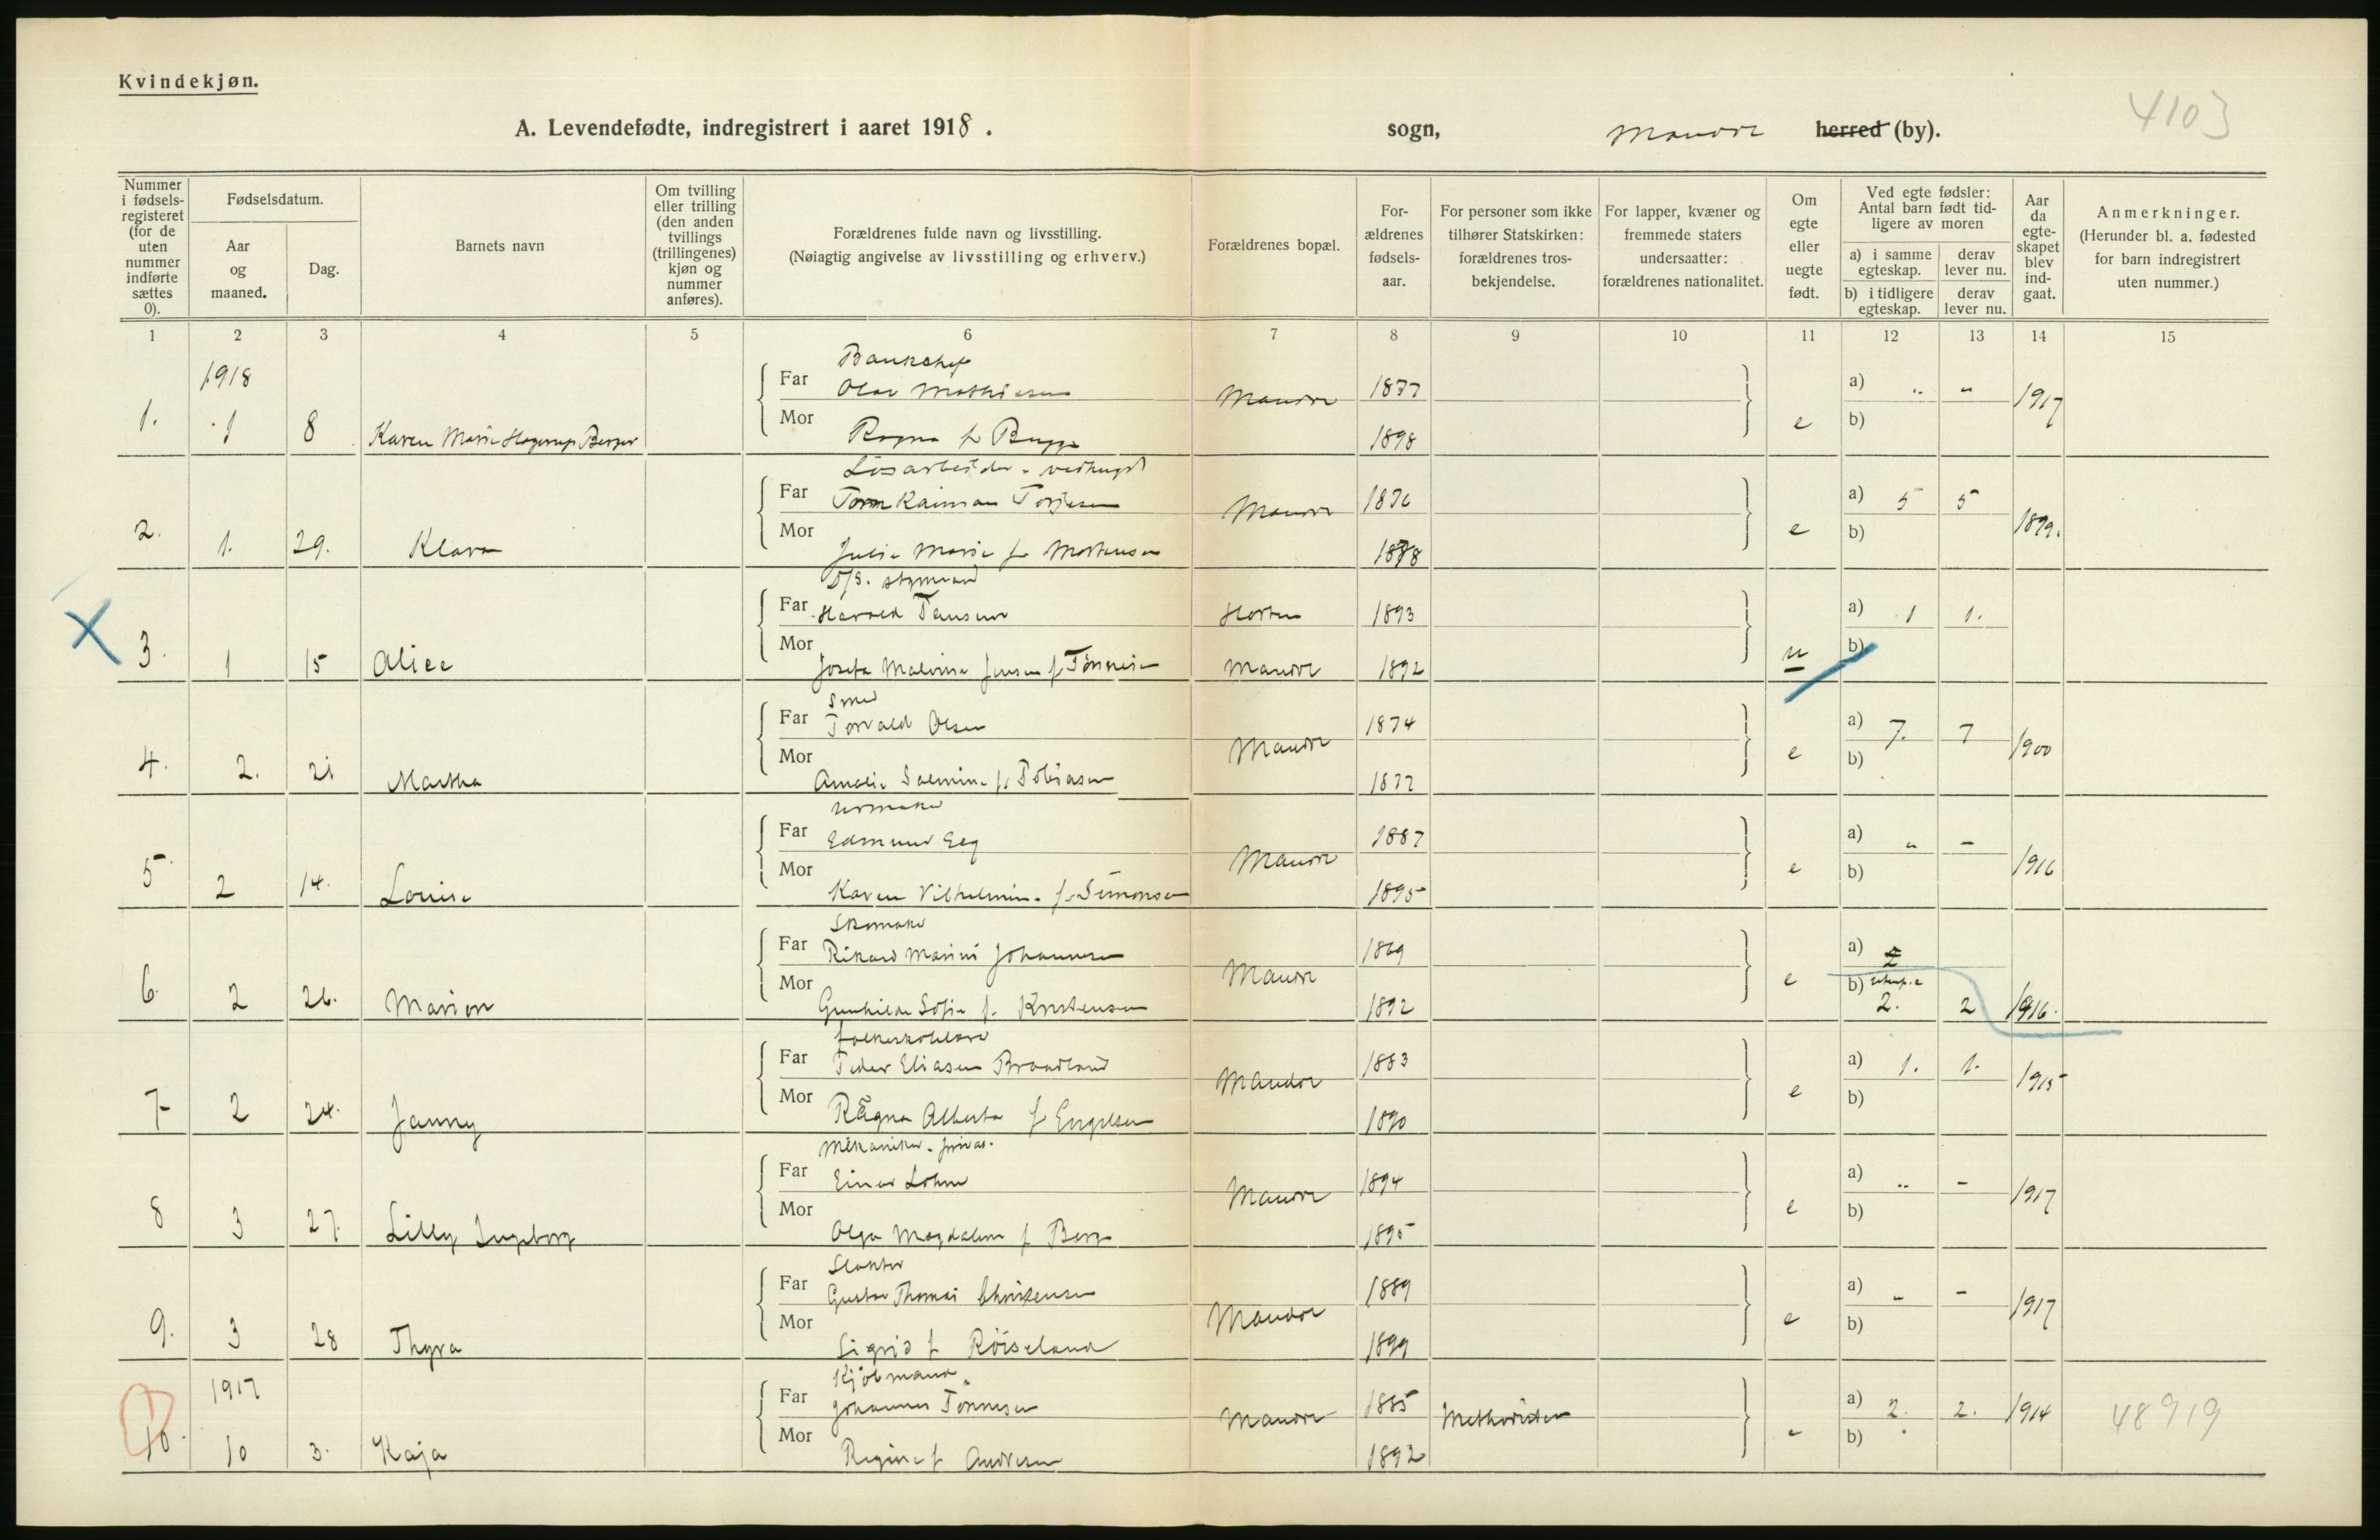 Kvindekjøn.
4103
A. Levendefødte, indregistrert i aaret 1918. sogn, herred (by).
Nummer i fødsels-registeret (for de uten nummer indførte sættes 0).
Fødselsdatum.
Aar og maaned.
Dag.
Barnets navn
Om tvilling eller trilling (den anden tvillings (trillingenes) kjøn og nummer anføres).
Forældrenes fulde navn og livsstilling.
(Nøiagtig angivelse av livsstilling og erhverv.)
Forældrenes bopæl.
For-ældrenes fødsels-aar.
For personer som ikke tilhører Statskirken: forældrenes tros-bekjendelse.
For lapper, kvæner og fremmede staters undersaatter: forældrenes nationalitet.
Om egte eller uegte født.
Ved egte fødsler: Antal barn født tid-ligere av moren
a) i samme egteskap. derav lever nu.
b) i tidligere egteskap. derav lever nu.
Aar da egte-skapet blev ind-gaat.
Anmerkninger.
(Herunder bl. a. fødested for barn indregistrert uten nummer.)
1 2 3 4 5 6 7 8 9 10 11 12 13 14 15
1918
Far 1877 a) „ „ 1917
1. 1 8 Karen Marie Hagerup Mor 1898 e b)
Far 1876 a) 5 5 1899.
2. 1. 29. Klara Mor Julie Marie f. Mortensen e b)
D/S. styrmand
Far Harald Horten 1893 a) 1 1.
3. 1 15 Alice Mor 1892 u b)
Smed
Far Torvald Olsen 1874 a) 7. 7 1900
4. 2. 21 Martha Mor Amalie f. Tobiasen 1877 e b)
Urmaker
Far Edmund Eeg 1887 a) „ - 1916
5 2 14. Louise Mor Karen Vilhelmine f. Simonsen 1895 e b)
Skomaker
Far Rikard Marius Johannesen 1869 a) 2
6. 2 26. Marion Mor Gunhilde Sofie f. Kristensen 1892 e b) 2. 2 1916.
Folkeskolelærer
Far Peder Eliasen Braadland 1883 a) 1. 1. 1915
7 2 24. Janny Mor Ragna Alberta f. Engelsen 1890 e b)
Mekaniker
Far Einar 1894 a) „ - 1917
8 3 27. Lilly Ingeborg Mor Olga Magdalene f. Berg 1895 e b)
Slakter
Far Gustav Thomas Christensen 1889 a) - - 1917
9. 3 28 Thyra Mor Sigrid f. Röiseland 1899 e b)
1917
Kjöbmand
Far Johannes Tönnesen 1885 Methodister a) 2. 2. 1914 48919
10. 10 3. Kaja Mor Regine f. Andresen 1892 e b)